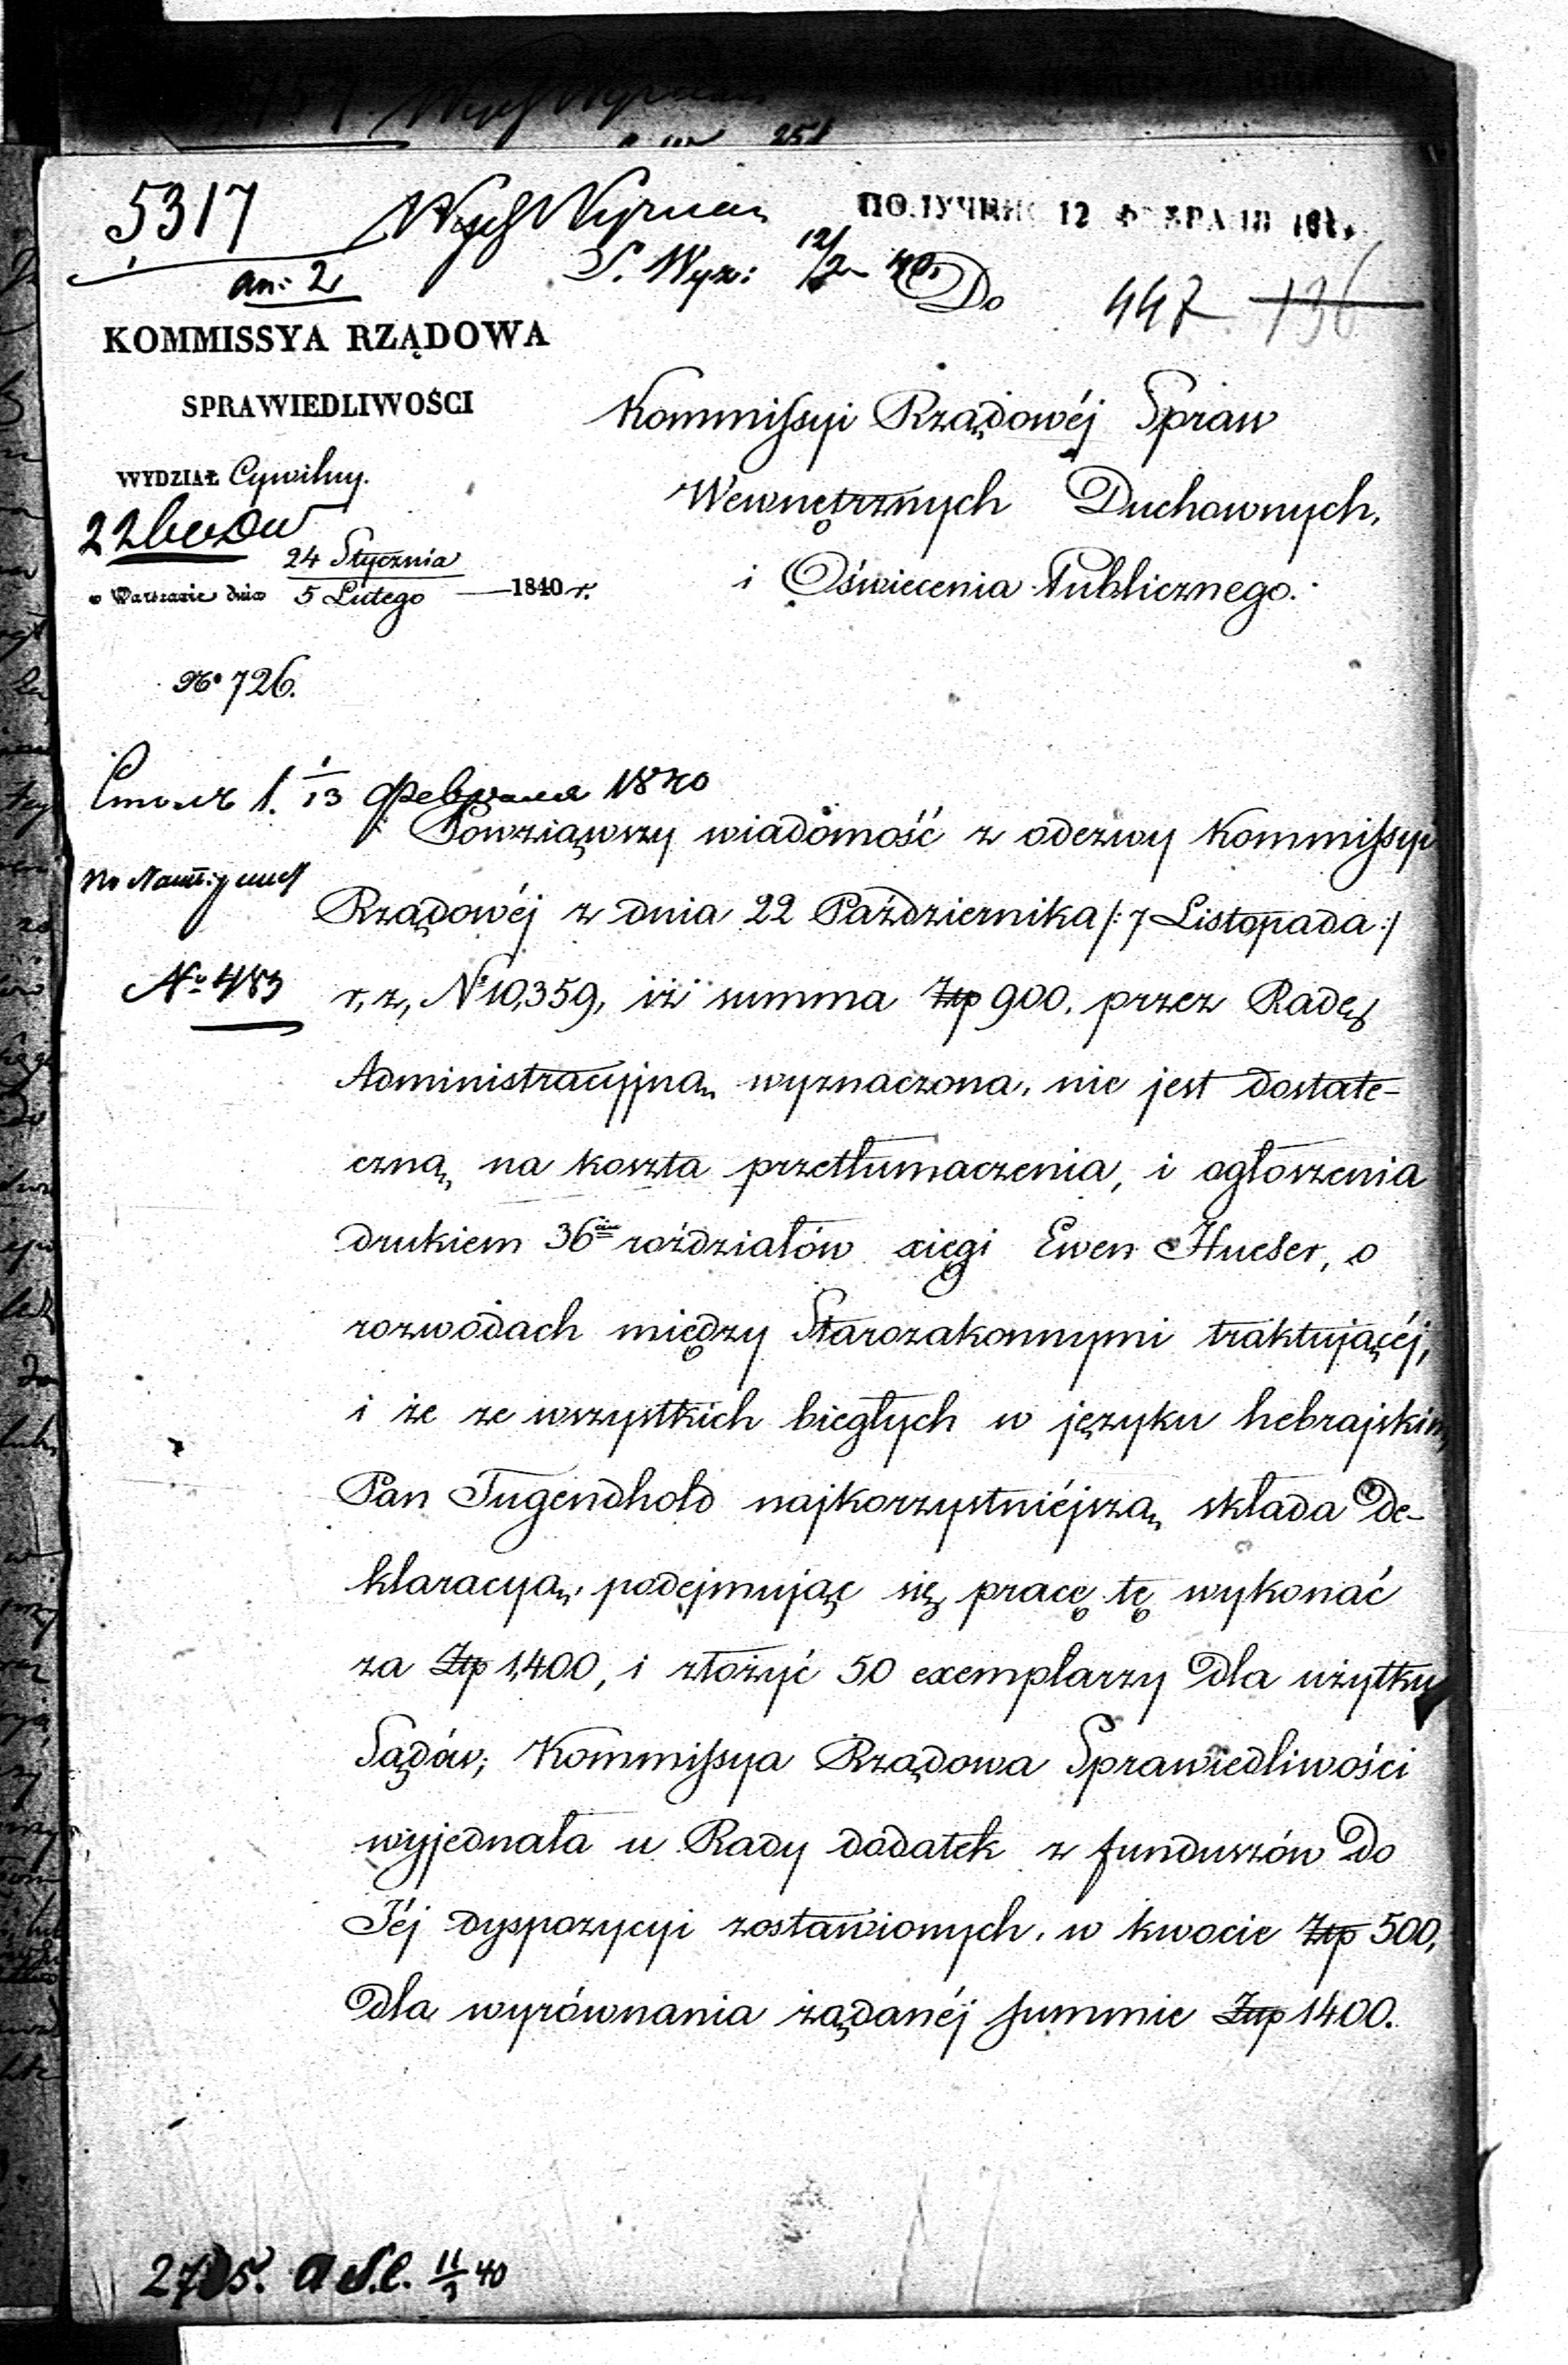 5317
an: 2
ПОЛУЧЕНО 12 ФЕВРАЛЯ
S. Wyz: 12/2 40.
Do
447 136
KOMMISSYA RZĄDOWA
SPRAWIEDLIWOŚCI
WYDZIAŁ Cywilny.
w Warszawie dnia 24 Stycznia / 5 Lutego 1840 r.
No 726.
Kommissyi Rządowéj Spraw
Wewnętrznych Duchownych,
i Oświecenia Publicznego.
1/13 Февраля 1840
No 483
Powziąwszy wiadomość z odezwy Kommissyi
Rządowéj z dnia 22 Października /: 7 Listopada :/
r, z, No 10,359, iż summa Złp 900. przez Radę
Administracyjną wyznaczona, nie jest dostate-
czną na koszta przetłumaczenia, i ogłoszenia
drukiem 36ciu roździałów xięgi Ewen Hueser, o
rozwodach między Starozakonnymi traktującéj,
i że ze wszystkich biegłych w języku hebrajskim
Pan Tugendhold najkorzystniéjszą składa de-
klaracyą, podejmując się pracę tę wykonać
za Złp 1,400, i złożyć 50 exemplarzy dla użytku
Sądów; Kommissya Rządowa Sprawiedliwości
wyjednała u Rady dodatek z funduszów do
Jéj dyspozycyi zostawionych, w kwocie Złp 500,
dla wyrównania żądanéj summie Złp 1400.
11/3 40